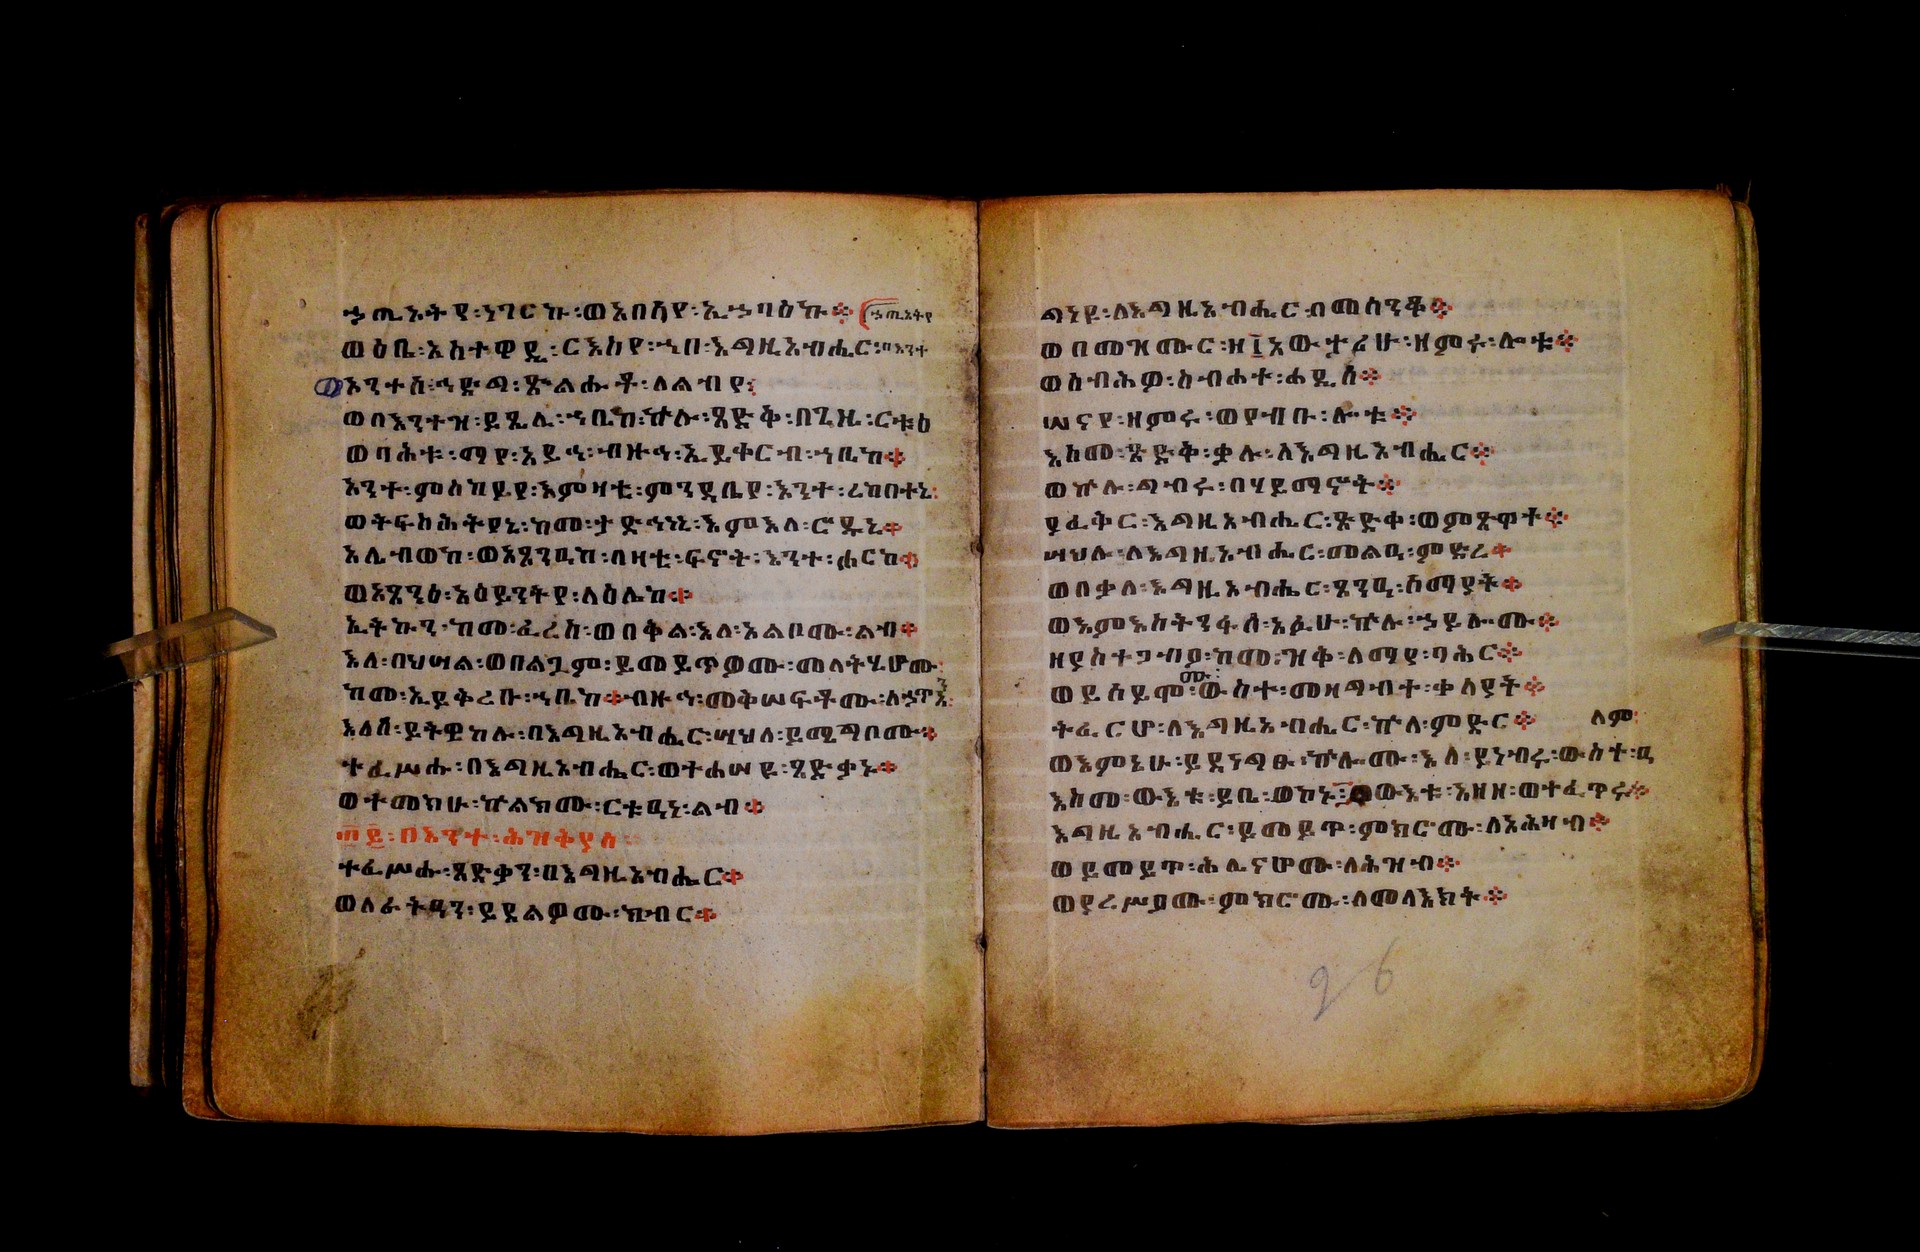 ኃጢአትየ፡ነገርኩ፡ወአበሳየ፡ኢኃባዕኩ፨ ኃጢአትየ
ወዕቤ፡እስተዋዲ፡ርእስየ፡ኀበ፡እግዚአብሔር፡በእንተ
አንተ፡ኀድግ፡ጽልሑቶ፡ለልብየ፤
ወበእንተዝ፡ይጼሊ፡ኀቤከ፡ኵሉ፡ጻድቅ፡በጊዜ፡ርቱዕ
ወባሕቱ፡ማየ፡አይኅ፡ብዙኅ፡ኢይቀርብ፡ኀቤከ፨
አንተ፡ምስካይየ፡እምዛቲ፡ምንዳቤየ፡እንተ፡ረከበተኒ፡
ወትፍስሕትየኒ፡ከመ፡ታድኅነኒ፡እምእለ፡ሮዱኒ፨
እሌብወከ፡ወእጼንዒከ፡በዛቲ፡ፍኖት፡እንተ፡ሖርከ፨
ወእጼንዕ፡አዕይንትየ፡ላዕሌከ፨
ኢትኩን፡ከመ፡ፈረስ፡ወበቅል፡እለ፡አልቦሙ፡ልብ፨
እለ፡በህሣል፡ወበልጓም፡ይመይጥዎሙ፡መላትሂሆሙ፡
ከመ፡ኢይቅረቡ፡ኀቤከ፨ብዙኅ፡መቅሠፍቶሙ፡ለኃጥአ
እለሰ፡ይትዌከሉ፡በእግዚአብሔር፡ሣህለ፡ይሜግቦሙ፨
ተፈሥሑ፡በእግዚአብሔር፡ወተሐሠዩ፡ጻድቃኑ፨
ወተመክሁ፡ኵልክሙ፡ርቱዓነ፡ልብ፨
፴፪፡በእንተ፡ሕዝቅያስ
ተፈሥሑ፡ጻድቃን፡በእግዚአብሔር፨
ወለራትዓን፡ይደልዎሙ፡ክብር፨
ግነዩ፡ለእግዚአብሔር፡በመሰንቆ፨
ወበመዝሙር፡ዘ፲አውታሪሁ፡ዘምሩ፡ሎቱ፨
ወሰብሕዎ፡ስብሐተ፡ሐዲስ፨
ሠናየ፡ዘምሩ፡ወየብቡ፡ሎቱ፨
እስመ፡ጽድቅ፡ቃሉ፡ለእግዚአብሔር፨
ወኵሉ፡ግብሩ፡በሃይማኖት፨
ያፈቅር፡እግዚአብሔር፡ጽድቀ፡ወምጽዋተ፨
ሣህሉ፡ለእግዚአብሔር፡መልዓ፡ምድረ፨
ወበቃለ፡እግዚአብሔር፡ጸንዓ፡ሰማያት፨
ወእምእስትንፋሰ፡አፉሁ፡ኵሉ፡ኃይሎሙ፨
ዘያስተጋብዖ፡ከመ፡ዝቅ፡ለማየ፡ባሕር፨
ሙ፡
ወይሰይሞ፡ውስተ፡መዛግብተ፡ቀላያት፨
ትፈርሆ፡ለእግዚአብሔር፡ኵላ፡ምድር፨ ለም፡
ወእምኔሁ፡ይደነግፁ፡ኵሎሙ፡እለ፡ይነብሩ፡ውስተ፡ዓ
እስመ፡ውእቱ፡ይቤ፡ወኮኑ፡ውእቱ፡አዘዘ፡ወተፈጥሩ፨
እግዚአብሔር፡ይመይጥ፡ምክሮሙ፡ለአሕዛብ፨
ወይመይጥ፡ሕሊናሆሙ፡ለሕዝብ፨
ወያረሥዖሙ፡ምክሮሙ፡ለመላእክት፨
26